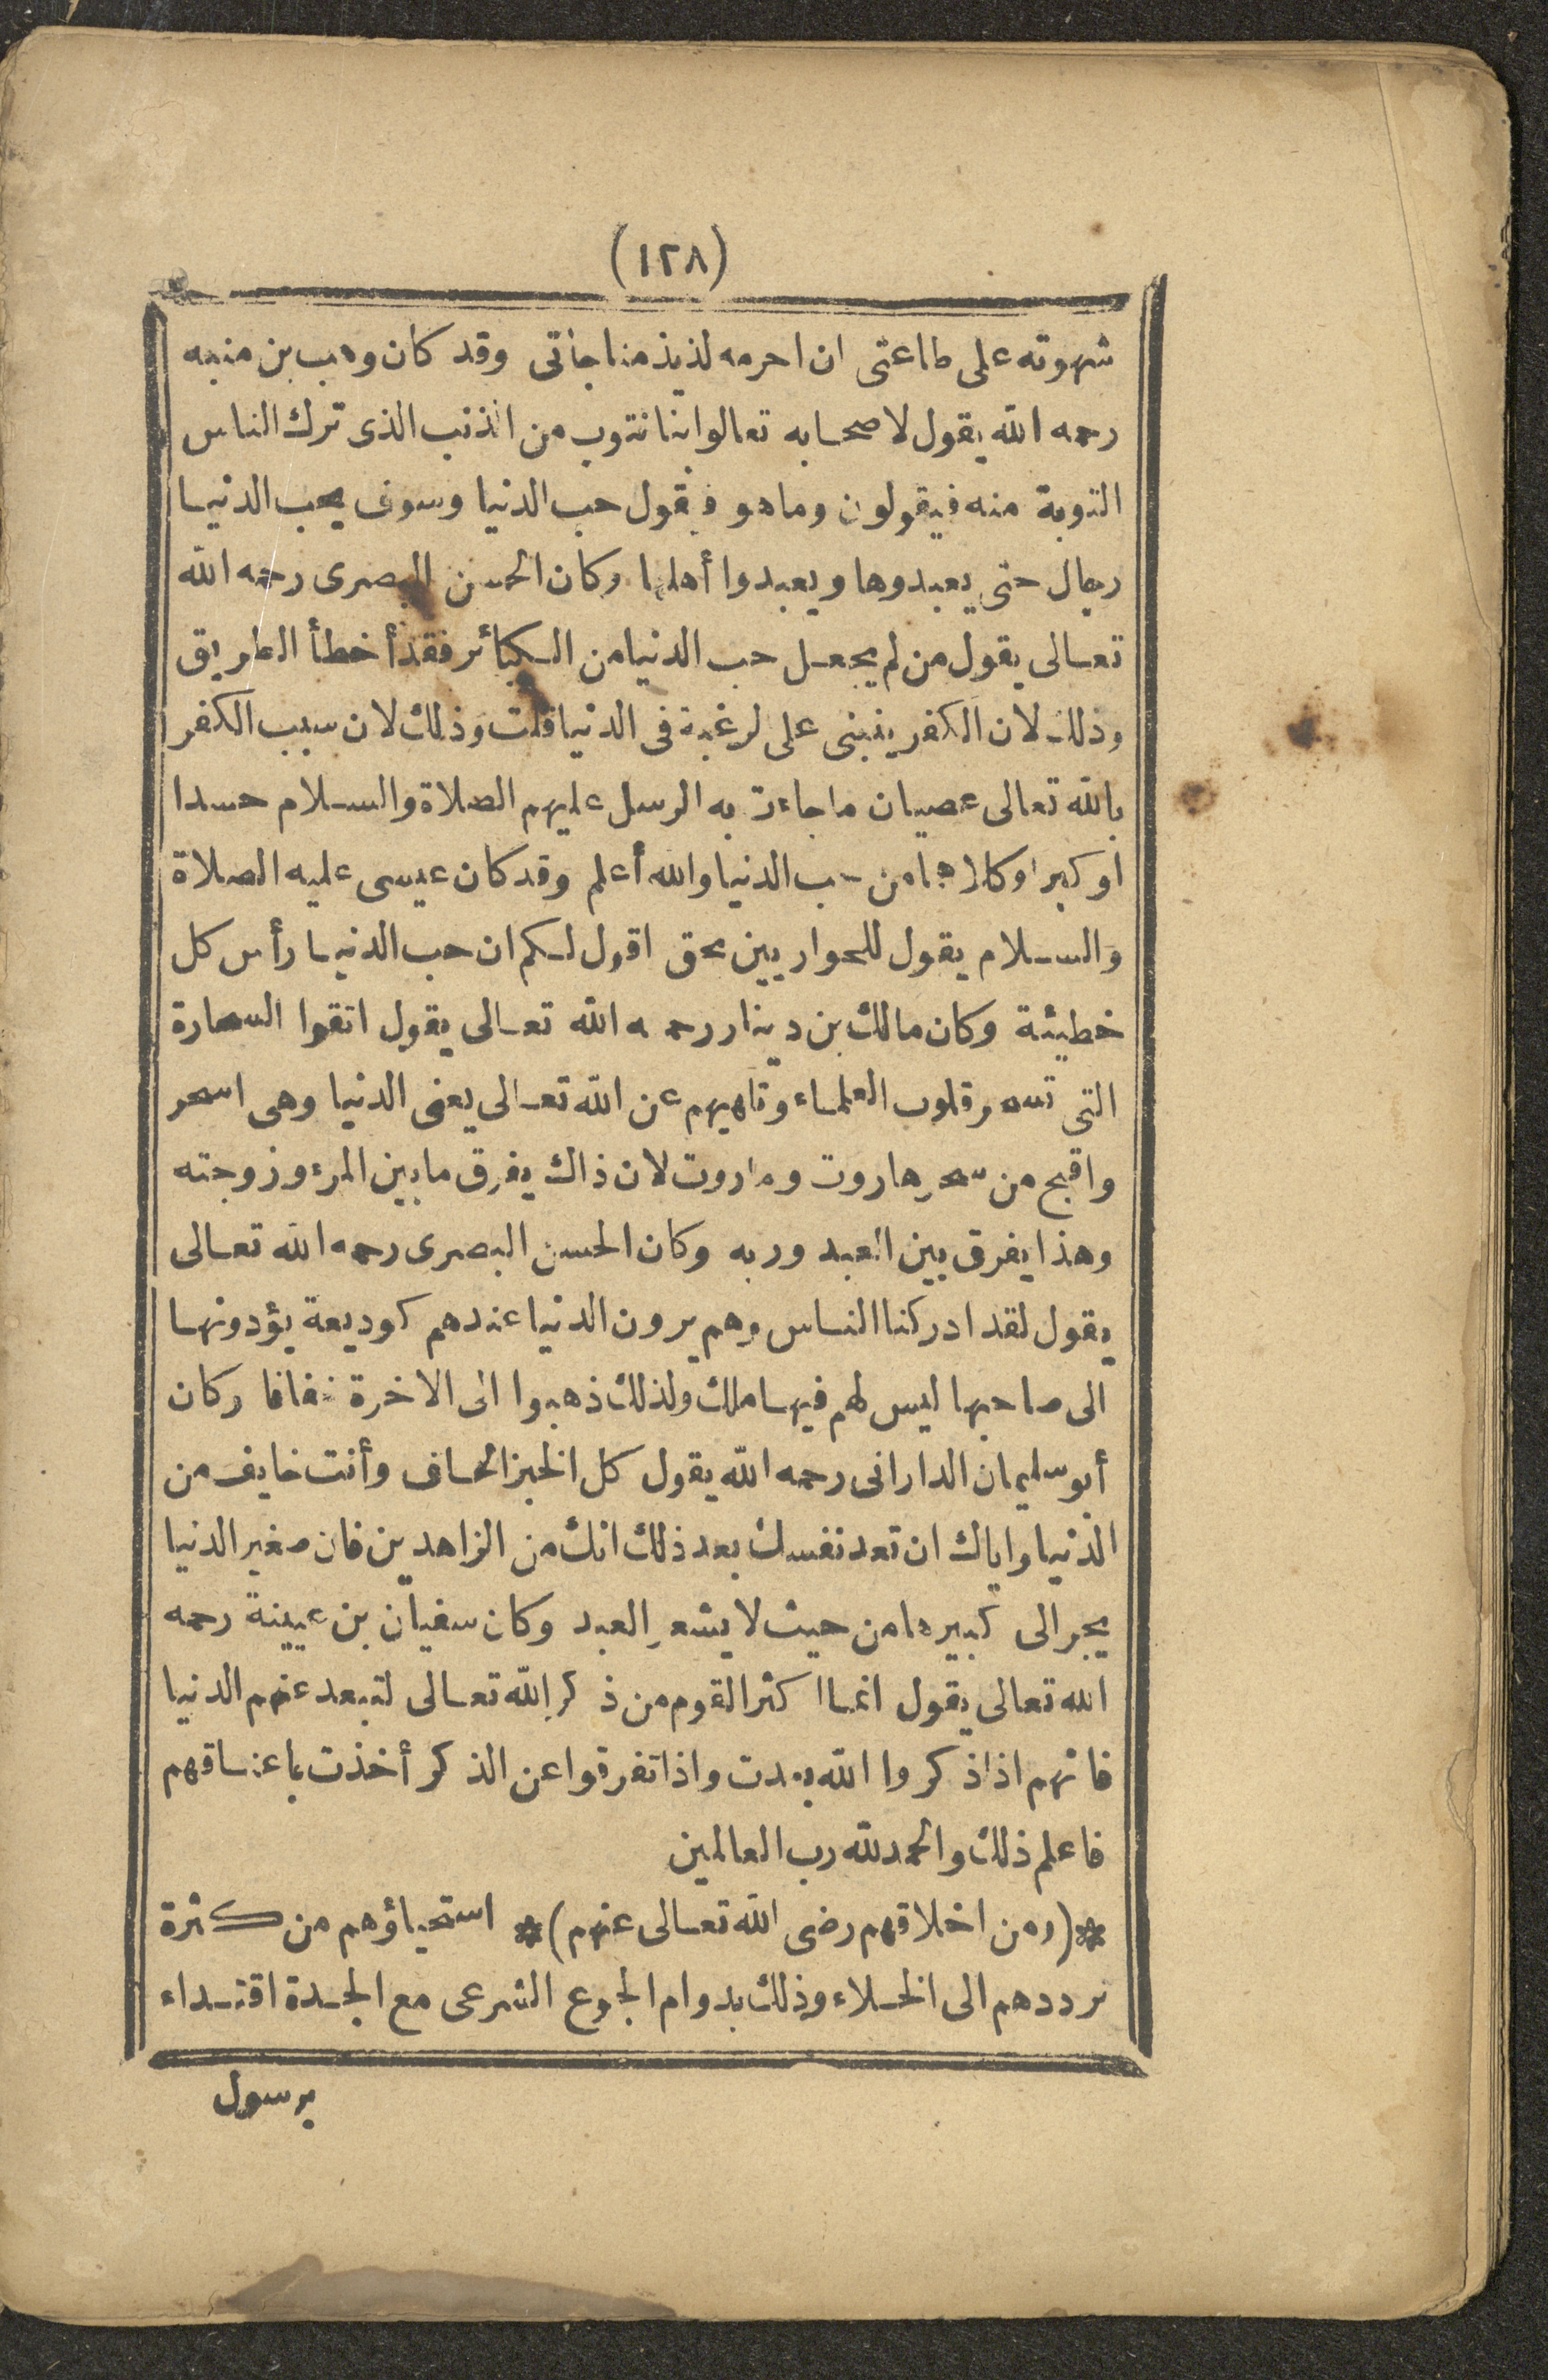 (١٢٨)
شهوته على طاعتى ان احرمه لذيذ مناجاتى وقد كان وهب بن منبه
رحمه الله يقول لاصحابه تعالوا بنا نتوب من الذنب الذى ترك الناس
التوبة منه فيقولون وما هو فيقول حب الدنيا وسوف يحب الدنيا
رجال حتى يعبدوها ويعبدوا أهلها وكان الحسن البصرى رحمه الله
تعالى يقول من لم يجعل حب الدنيا من الكبائر فقد أخطأ الطريق
وذلك لان الكفر ينبنى على لرغبة فى الدنيا قلت وذلك لان سبب الكفر
بالله تعالى عصيان ما جاءت به الرسل عليهم الصلاة والسلام حسدا
او كبرا وكلاهما من حب الدنيا والله أعلم وقد كان عيسى عليه الصلاة
والسلام يقول للحواريين بحق اقول لكم ان حب الدنيا رأس كل
خطيئة وكان مالك بن دينار رحمه الله تعالى يقول اتقوا السحارة
التى تسحر قلوب العلماء وتلهيهم عن الله تعالى يعنى الدنيا وهى اسحر
واقبح من سحر هاروت وماروت لان ذاك يفرق ما بين المرء وزوجته
وهذا يفرق بين العبد وربه وكان الحسن البصرى رحمه الله تعالى
يقول لقد ادركنا الناس وهم يرون الدنيا عندهم كوديعة يؤدونها
الى صاحبها ليس لهم فيها ملك ولذلك ذهبوا الى الاخرة خفافا وكان
أبو سليمان الدارانى رحمه الله يقول كل الخبز الحاف وأنت خايف من
الدنيا واياك ان تعد نفسك بعد ذلك انك من الزاهدين فان صغير الدنيا
يجر الى كبيرها من حيث لا يشعر العبد وكان سفيان بن عيينة رحمه
الله تعالى يقول انما اكثر القوم من ذكر الله تعالى لتبعد عنهم الدنيا
فانهم اذا ذكروا الله بعدت واذا تفرقوا عن الذكر أخذت باعناقهم
فاعلم ذلك والحمد لله رب العالمين
*(ومن اخلاقهم رضى الله تعالى عنهم)* استحياؤهم من كثرة
ترددهم الى الخلاء وذلك بدوام الجوع الشرعى مع الجدة اقتداء
برسول